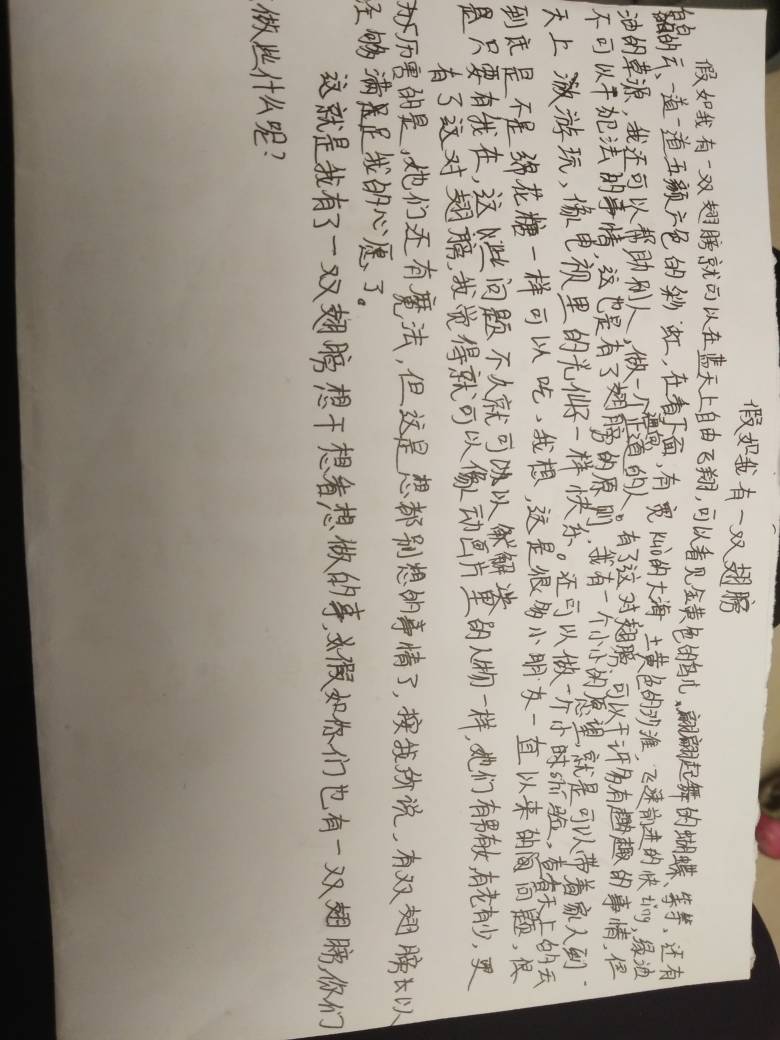 假如我有一双翅膀
假如我有一双翅膀就可以在蓝天上自由飞翔,可以看见金黄色的鸟儿,翩翩起舞的蝴蝶、等等、还有
的云、一道一道五颜六色的彩虹,在看下面,有宽kuo的大海 土黄色的沙滩,飞速前进的快ting,绿油
油的草源,我还可以帮助别人,做一个正道的人。有了这对翅膀,可以干许多有趣的事情,但
不可以干犯法的事情,这也是有了翅膀的原则,我有一个小小的愿望,就是可以带着家人到
天上 遨游玩,像电视里的光仙子一样快乐。还可以做一个小时shi验,查看天上的云
到底是不是绵花糖一样可以吃、我想,这是很多小朋友一直以来的问题,但
是只要有我在,这些问题不久就可以解决
有了这对翅膀,我觉得就可以像动画片里的人物一样,她们有男有,有老有少,更
厉害的是,她们还有魔法,但这是想都别想的事情了,按我所说,有双翅膀可以
够满足我的心愿了。
这就是我有了一双翅膀想干想看想做的事,假如你们也有一双翅膀,你们
做些什么呢?